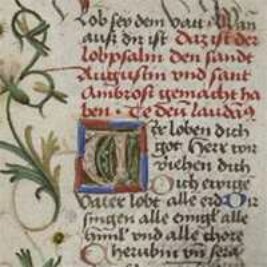 Lob sey dem vatt
aus dir ist Daz ist der
lobpsalm den sandt
Augustin vnd sant
Ambrosi gemacht ha
ben · Te deū laudaꝫ
Wir loben dich
got Here wir
viehen dich
Dich ewigē
vater lobt alle erd Dir
singen alle engel alle
himl vnd alle chore
Cherubim vn̄ sera